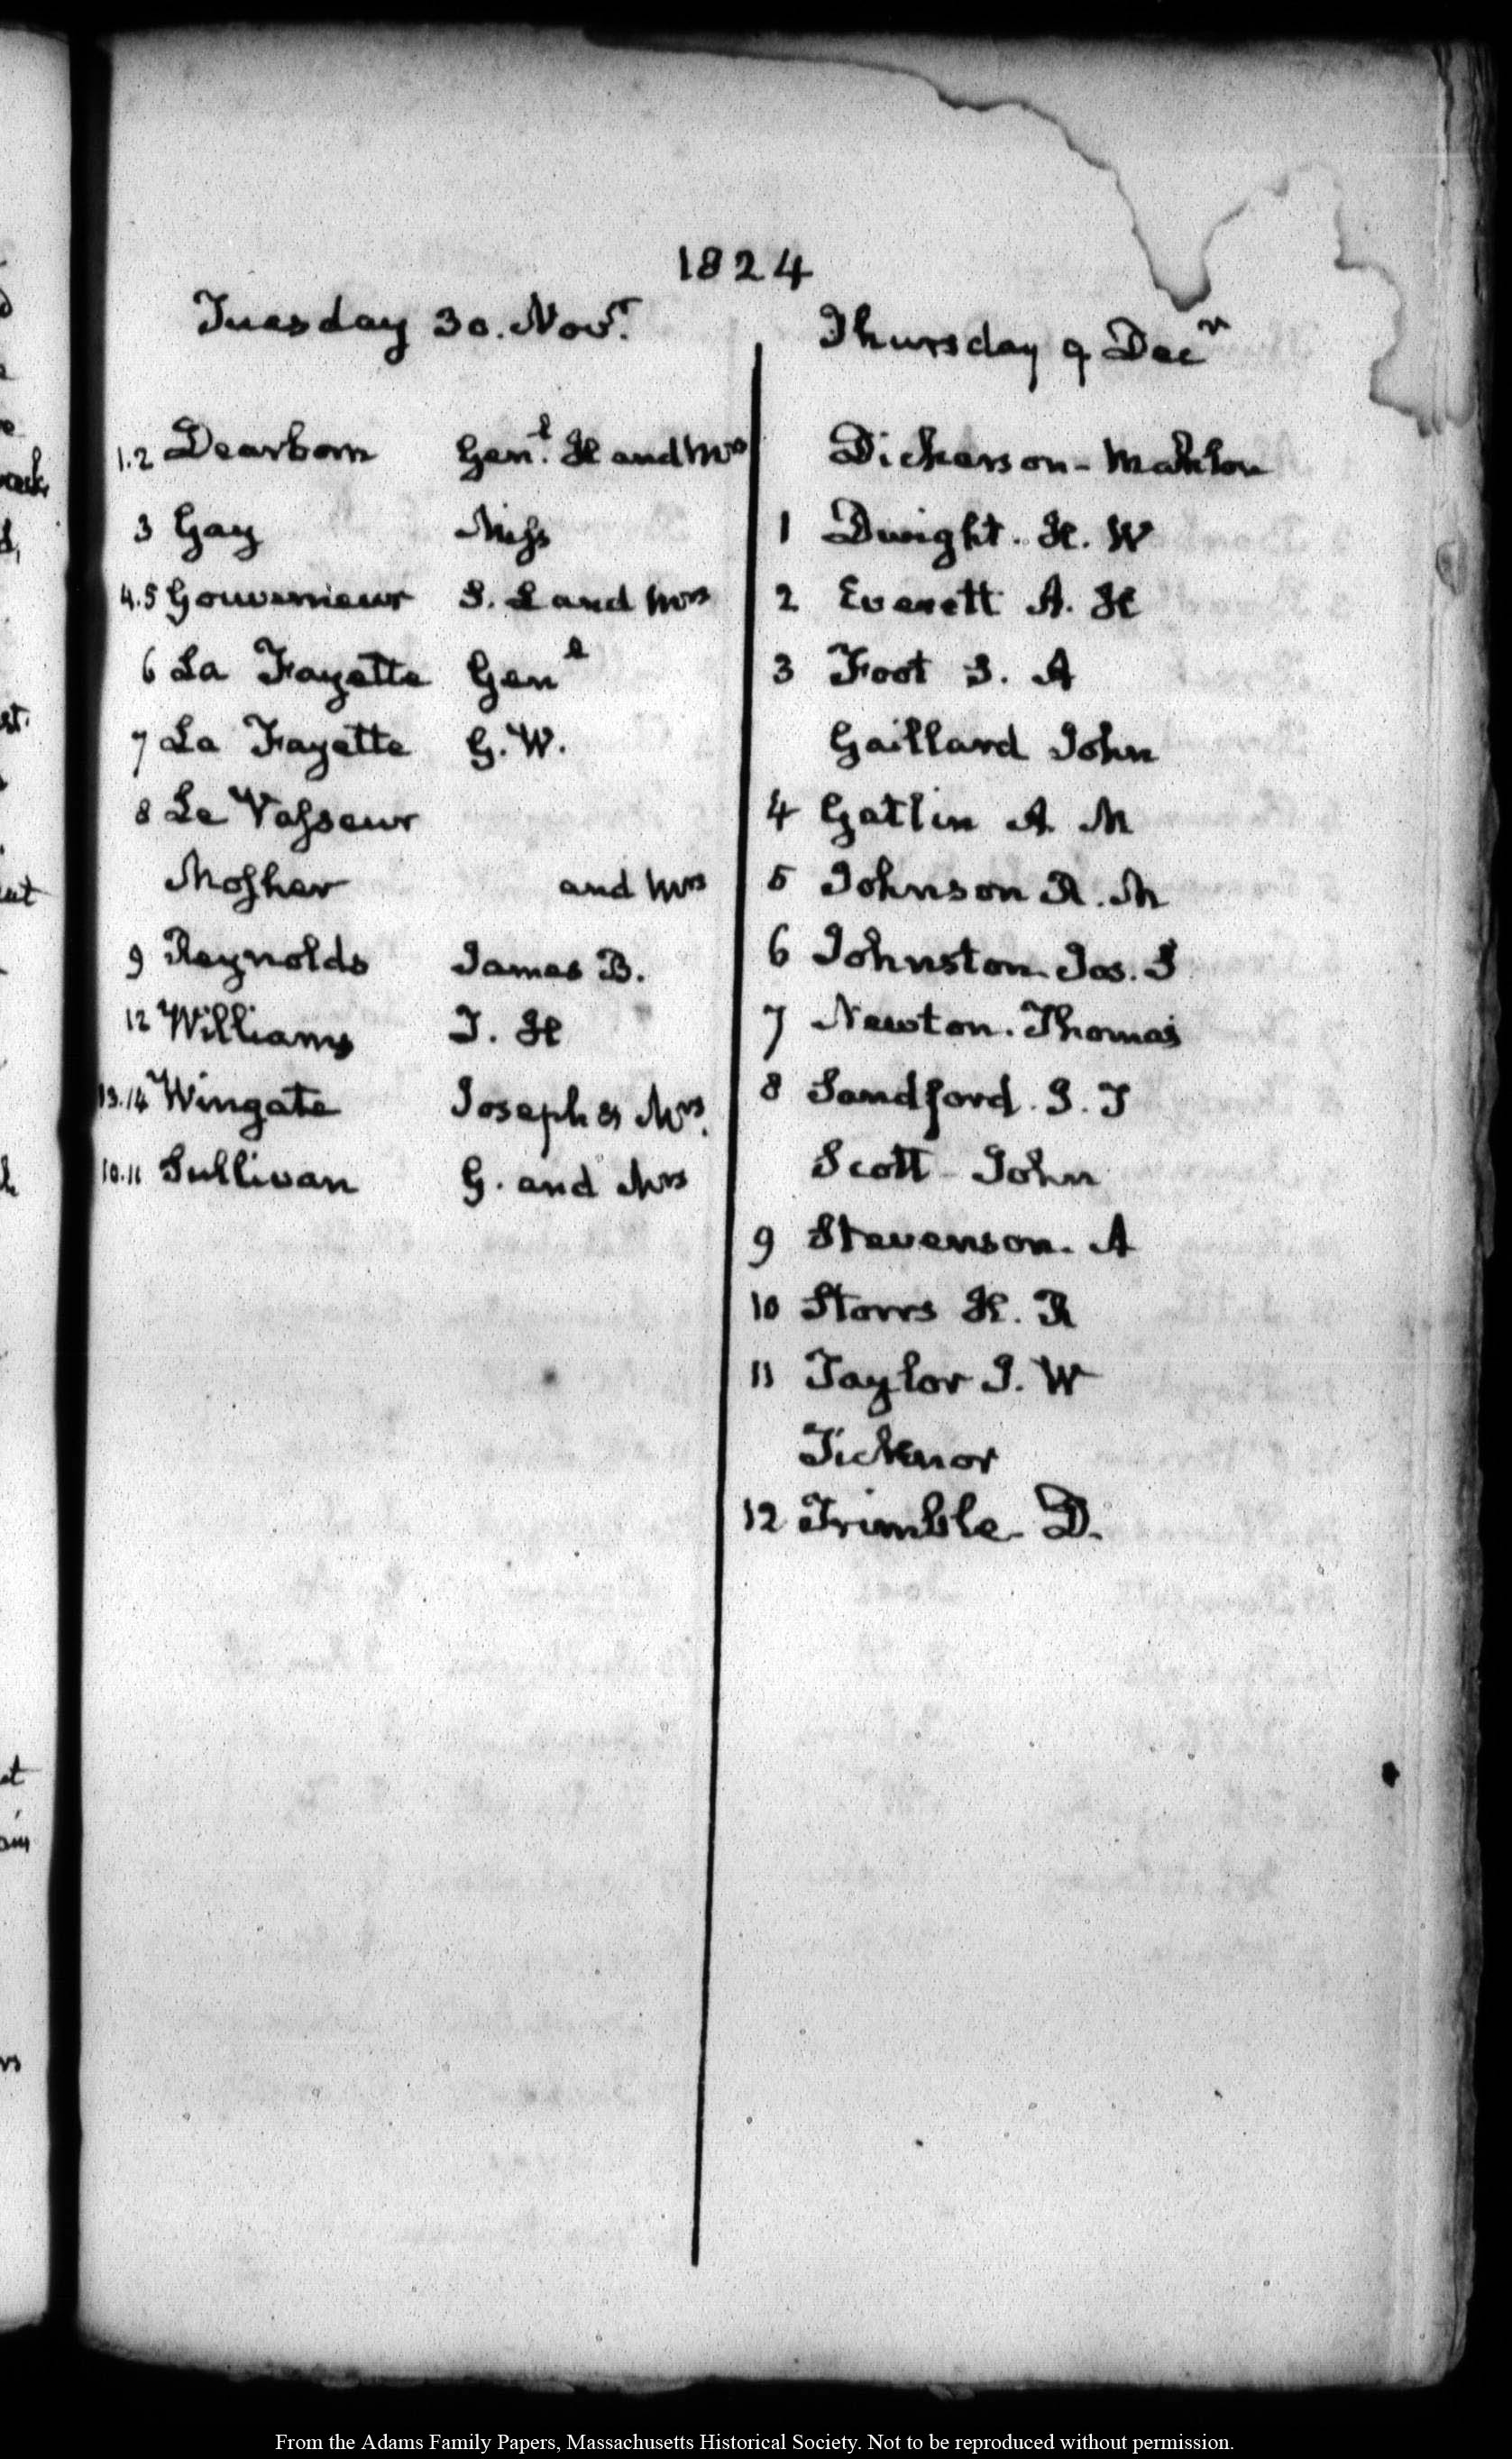 1824
Tuesday 30. Novr.
1.2 Dearborn Genl. H and Mrs
3 Gay Miss
4.5 Gouverneur S. L and Mrs
6 La Fayette Genl
7 La Fayette G. W.
8 Le Vasseur
Mosher and Mrs
9 Reynolds James B.
12 Williams T. H
13.14 Wingate Joseph & Mrs.
10.11 Sullivan G. and Mrs
Thursday 9 Decr
Dickerson - Mahlon
1 Dwight. H. W
2 Everett A. H
3 Foot S. A
Gaillard John
4 Gatlin A. M
5 Johnson R. M
6 Johnston Jos. S
7 Newton. Thomas
8 Sandford. J. T
Scott - John
9 Stevenson. A
10 Storrs H. R
11 Taylor J. W
Ticknor
12 Trimble - D.
From the Adams Family Papers, Massachusetts Historical Society. Not to be reproduced without permission.